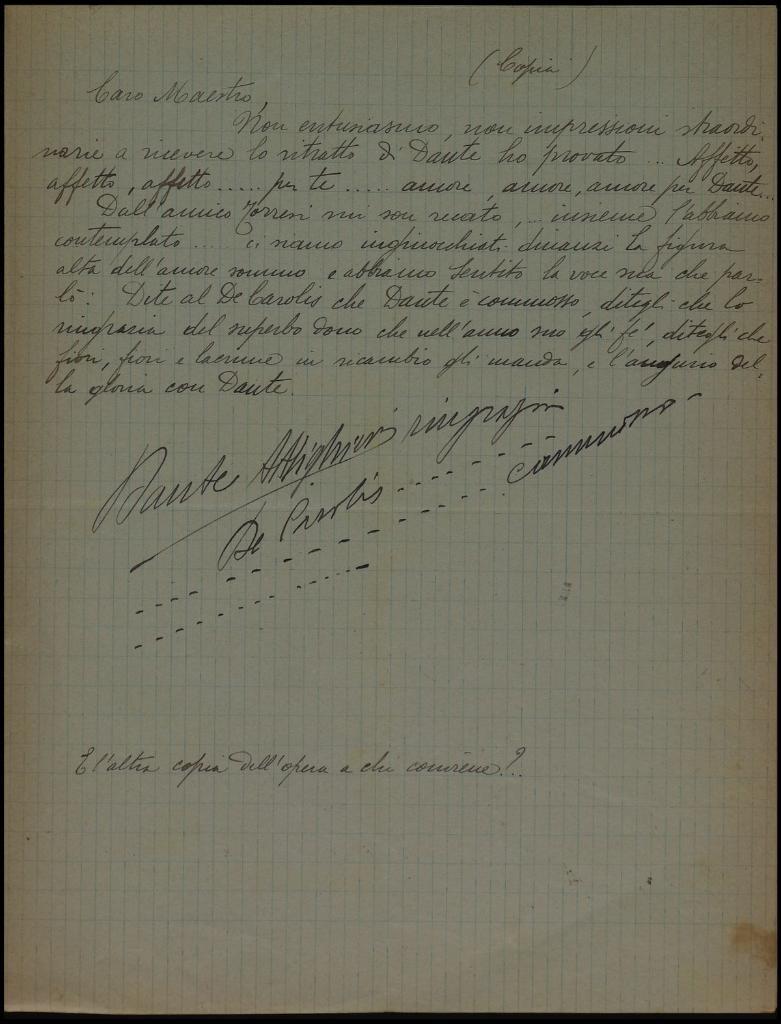 (Copia)
Caro Maestro,
Non entusiasmo, non impressioni straordi=
narie a ricevere lo ritratto di Dante ho provato ... Affetto,
affetto, affetto ..... per te ..... amore, amore, amore per Dante...
Dall'amico Torresi mi son recato, ... insieme l'abbiamo
contemplato .... ci siamo inginocchiati dinanzi la figura
alta dell'amore sommo e abbiamo sentito la voce sua che par=
lò: Dite al De Carolis che Dante è commosso, ditegli che lo
ringrazia del superbo dono che nell'anno suo egli fe', ditegli che
fiori, fiori e lacrime in ricambio gli manda, e l'augurio del=
la gloria con Dante.
Dante Allighieri ringrazia
De Carolis ........ commosso -
E l'altra copia dell'opera a chi conviene?...